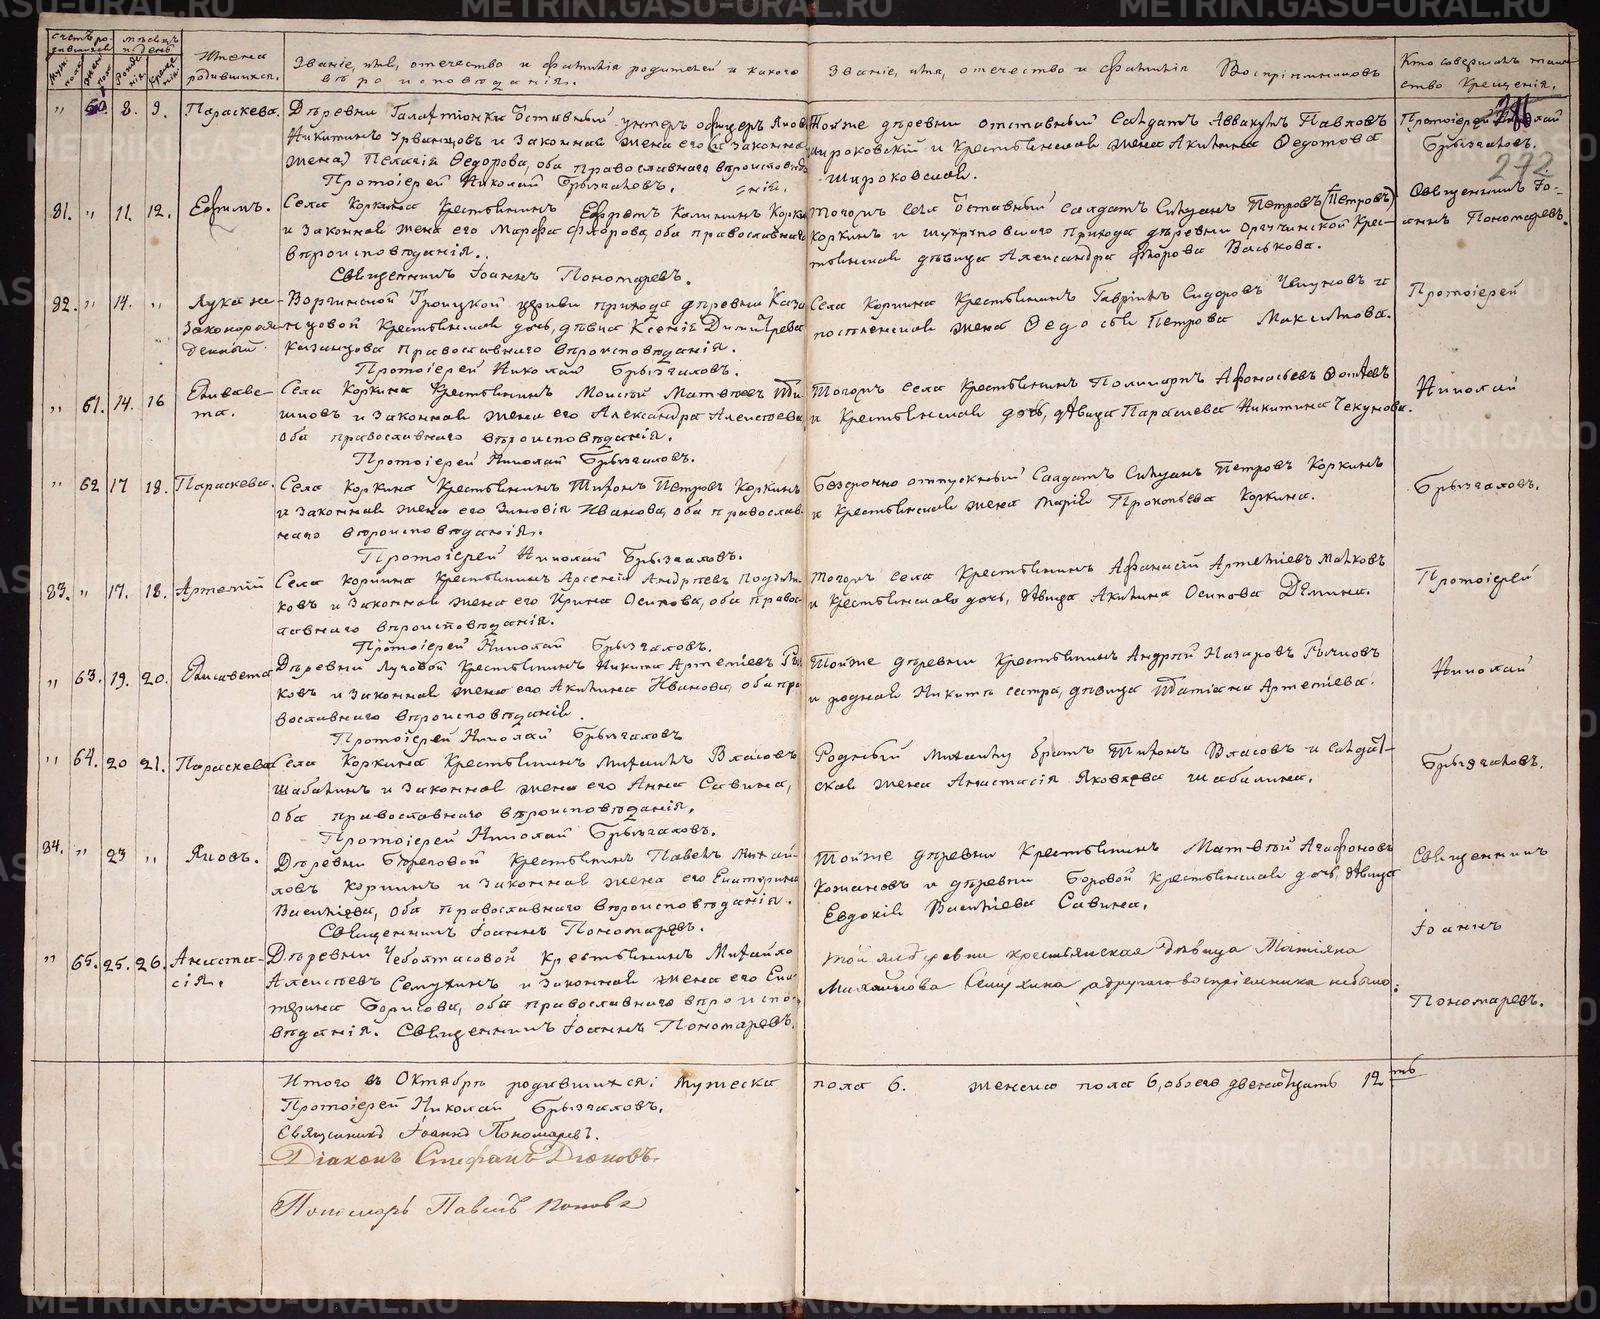 счетъ родившихся
мѣсяцъ и день
Муж. пола
Жен. пол.
Рожденія
Крещенія
Имена родившихся.
Званіе, имя, отечество и фамилія родителей и какого
вѣроисповѣданія.
Званіе, имя, отечество и фамилія Воспріемниковъ
Кто совершалъ таинство Крещенія.
„ 60. 8. 9. Параскева.
Деревни Галактіонки Отставный унтеръ офицеръ Яков
Никитинъ Урванцовъ и Законная жена его (и Законная
жена) Пелагія Ѳедорова, оба православнаго вѣроисповѣданія.
Протоіерей Николай Брызгаловъ.
Тойже деревни отставный Салдатъ Аввакумъ Павловъ
Широковскій и Крестьянская жена Акилина Ѳедотова
Широковская.
Протоіерей Николай
Брызгаловъ.
272
81. „ 11. 12. Ефимъ.
Села Коркина Крестьянинъ Ефремъ Калининъ Коркинъ
и Законная жена его Марфа Флорова, оба православнаго
вѣроисповѣданія.
Священникъ Іоаннъ Пономаревъ.
Тогожъ села Отставный Салдатъ Симеонъ Петровъ (Петровъ)
Коркинъ и прихода деревни Крес-
тьянская дѣвица Александра Флорова Васькова.
Священникъ Іо-
аннъ Пономаревъ.
82. „ 14. „ Лука незаконорожденный.
Троицкой церкви прихода деревни Каза
нцовой Крестьянская дочь, дѣвица Ксенія Димитріева
Казанцова православнаго вѣроисповѣданія.
Протоіерей Николай Брызгаловъ.
Села Коркина Крестьянинъ Гавріилъ Сидоровъ Чекуновъ и
жена Ѳедосья Петрова Максимова.
Протоіерей
„ 61. 14. 16 Елисавета.
Села Коркина Крестьянинъ Моисей Матѳеевъ
и Законная жена его Александра Алексѣева
оба православнаго вѣроисповѣданія.
Протоіерей Николай Брызгаловъ.
Тогожъ села Крестьянинъ Поликарпъ Афонасьевъ
и Крестьянская дочь, дѣвица Параскева Никитина Чекунова.
Николай
„ 62 17 18. Параскева.
Села Коркина Крестьянинъ Тихонъ Петровъ Коркинъ
и Законная жена его Зиновія Иванова, оба православ-
наго вѣроисповѣданія.
Протоіерей Николай Брызгаловъ.
Безсрочно отпускный Салдатъ Симеонъ Петровъ Коркинъ
и Крестьянская жена Марія Прокопьева Коркина.
Брызгаловъ.
83. „ 17. 18. Артемій
Села Коркина Крестьянинъ Арсеній Андреевъ
ковъ и Законная жена его Ирина Осипова, оба правос-
лавнаго вѣроисповѣданія.
Протоіерей Николай Брызгаловъ.
Тогожъ села Крестьянинъ Афанасій Артеміевъ
и Крестьянская дочь, дѣвица Акилина Осипова Демина.
Протоіерей
„ 63. 19. 20. Елисавета
Деревни Луговой Крестьянинъ Никита Артеміевъ Рыч
ковъ и Законная жена его Акилина Иванова, оба пра
вославнаго вѣроисповѣданія.
Протоіерей Николай Брызгаловъ
Тойже деревни Крестьянинъ Андрей Назаровъ Рычковъ
и родная Никитѣ сестра, дѣвица Татіана Артеміева.
Николай
„ 64. 20 21. Параскева
Села Коркина Крестьянинъ Михаилъ Власовъ
Шабалинъ и Законная жена его Анна Савина,
Оба православнаго вѣроисповѣданія.
Протоіерей Николай Брызгаловъ.
Родный Михаилу братъ Тихонъ Власовъ и салдат-
ская жена Анастасія Яковлева Шабалина.
Брызгаловъ.
84. „ 23 „ Яковъ.
Деревни Береговой Крестьянинъ Павелъ Михай-
ловъ Коркинъ и Законная жена его Екатерина
Васильева, Оба православнаго вѣроисповѣданія.
Священникъ Іоаннъ Пономаревъ.
Тойже деревни Крестьянинъ Матвѣй Агафоновъ
Кожановъ и деревни Боровой Крестьянская дочь, дѣвица
Евдокія Васильева Савина.
Священникъ
Іоаннъ
„ 65. 25. 26. Анаста-
сія.
Деревни Чеботасовой Крестьянинъ Михайло
Алексѣевъ Семухинъ и Законная жена его Ека
терина Борисова, оба православнаго вѣроиспо-
вѣданія. Священникъ Іоаннъ Пономаревъ.
Той же деревни крестьянская дѣвица Татіяна
Михайлова Семухина, а другаго воспріемника небыло.
Пономаревъ.
Итого въ Октябрѣ родившихся: Мужеска пола 6. женска пола 6, обоего двенатцать 12ть
Протоіерей Николай Брызгаловъ.
Священникъ Іоаннъ Пономаревъ.
Діаконъ Стефанъ Дюковъ.
Пономарь Павелъ Поповъ
METRIKI.GASO-URAL.RU